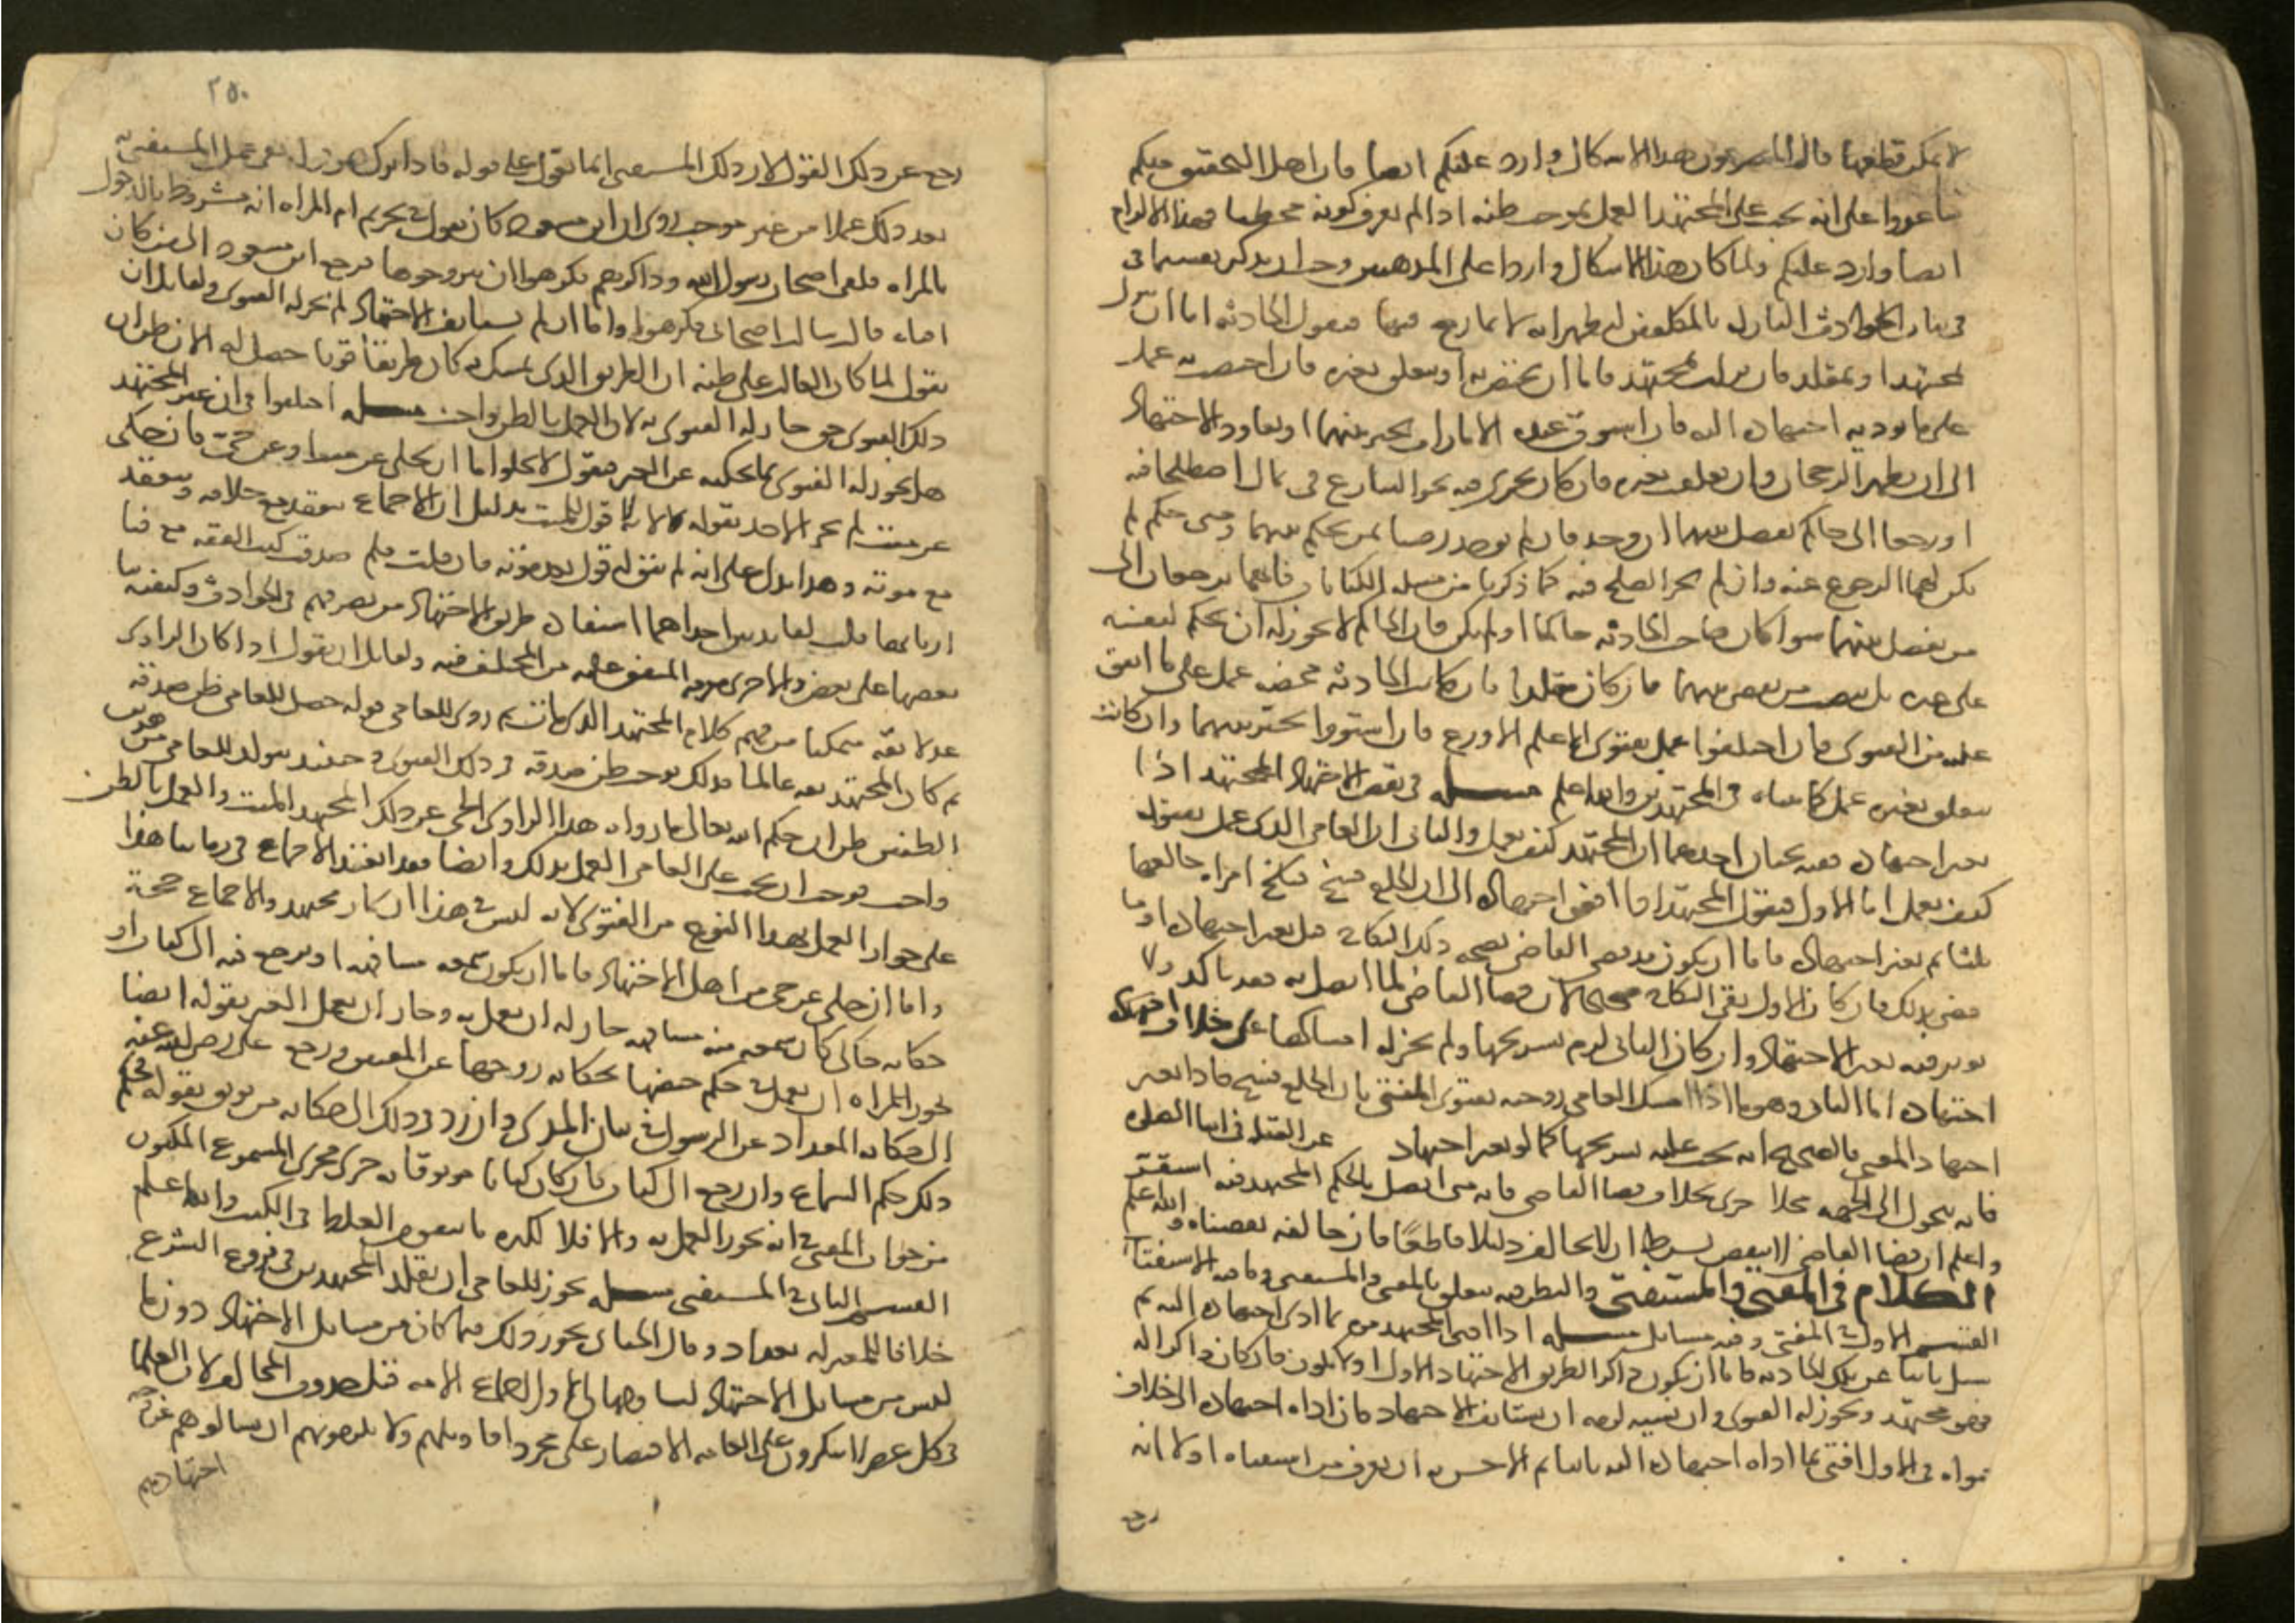 لا يمكن قطعها قال المصوبون هذا الاشكال وارد عليكم ايضا فان اهل التحقيق منكم
ساعدوا على انه يجب على المجتهد العمل بموجب ظنه اذا لم يعرف كونه مخطيا فهذا الالزام
ايضا وارد عليكم ولما كان هذا الاشكال واردا على المذهبين وجب ان يذكر تقسيما فى
فى بيان الحوادث النازلة بالمكلفين ليظهر انه لا تمانع فيها فنقول الحادثة اما ان تنزل
بمجتهد او بمقلد فان نزلت بمجتهد فاما ان تختص به او تتعلق بغيره فان اختصت به عمل
على ما يوديه اجتهاده اليه فان استوت عنده الامارات تخير بينهما او يعاود الاجتهاد
الى ان يظهر الرجحان وان تعلقت بغيره فان كان يجرى فيه نحو التنازع فى مال اصطلحا فيه
او رجعا الى حاكم يفصل بينهما ان وجد فان لم يوجد رضيا بمن يحكم بينهما ومتى حكم لم
يكن لهما الرجوع عنه وان لم يجز الصلح فيه كما ذكرنا من مسله الكنايات فانهما يرجعان الى
من يفصل بينهما سوا كان صاحب الحادثة حاكما او لم يكن فان الحاكم لا يجوز له ان يحكم لنفسه
على غيره بل ينصب من يقضى بينهما فان كان مقلدا فان كانت الحادثه تخصه عمل على ما اتفق
عليه من الفتوى فان اختلفوا عمل بفتوى الاعلم الاورع فان استووا تخير بينهما وان كانت
تتعلق بغيره عمل كما بيناه فى المجتهدين والله اعلم مسله فى نقض الاجتهاد المجتهد اذا
تغير اجتهاده ففيه بحثان احدهما ان المجتهد كيف يعمل والثانى ان العامى الذى عمل بفتواه
كيف يعمل اما الاول فنقول المجتهد اذا افضى اجتهاده الى ان الخلع فسخ فنكح امراه خالعها
ثلثا ثم تغير اجتهاده فاما ان يكون قد قضى القاضى بصحه ذلك النكاح قبل تغير اجتهاده او ما
قضى بذلك فان كان الاول بقى النكاح صحيحا لان قضا القاضى لما اتصل به فقد تاكد ولا
يوثر فيه تغير الاجتهاد وان كان الثانى لزم تسريحها ولم يجز له امساكها على خلاف اجتهاده
اجتهاده اما الثانى وهو ما اذا امسك العامى زوجته بفتوى المفتى بان الخلع فسخ فاذا تغير
اجتهاد المفتى فالصحيح انه يجب عليه تسريحها كما لو تغير اجتهاد عن القبلة فى اثنا الصلوه
فانه يتحول الى الجهه بخلاف قضا القاضى فانه متى اتصل بالحكم المجتهد فيه استقر
واعلم ان قضا القاضى لا ينقض بشرط ان لا يخالف دليلا قاطعا فان خالفه نقضناه والله اعلم
الكلام فى المفتى والمستفتى والنظر فيه يتعلق بالمفتى والمستفتى وما فيه الاستفتا
القسم الاول فى المفتى وفيه مسايل مسله اذا افتى المجتهد من بما ادى اجتهاده اليه ثم
سيل ثانيا عن تلك الحادثه فاما ان يكون ذاكرا لطريق الاجتهاد الاول او لا يكون فان كان ذاكرا له
فهو مجتهد ويجوز له الفتوى وان نسيه لزمه ان يستانف الاجتهاد فان اداه اجتهاده الى خلاف
فتواه فى الاول افتى بما اداه اجتهاده اليه ثانيا ثم الاحسن به ان يعرف من استفتاه اولا انه
رجع
٢٥٠
رجع عن ذلك القول لان ذلك المستفتى انما يعول على قوله فاذا ترك هو قوله بقى عمل المستفتى به
بعد ذلك عملا من غير موجب روى ان ابن مسعود كان يقول فى تحريم ام المراه انه مشروط بالدخول
بالمراه فلقى اصحاب رسول الله وذاكرهم فكرهوا ان يتزوجها فرجع ابن مسعود الى من كان
افتاه قال سالت اصحابى فكرهوا واما ان لم يستانف الاجتهاد لم يجز له الفتوى ولقايل ان
يقول لما كان الغالب على ظنه ان الطريق الذى تمسك به كان طريقا قويا حصل له الان ظن ان
ذلك الفتوى حق جاز له الفتوى به لان العمل بالظن واجب مسله اختلفوا فى ان غير المجتهد
هل يجوز له الفتوى بما يحكيه عن الغير فنقول لا يخلوا اما ان يحكى عن ميت او عن حى فان حكى
عن ميت لم يجز الاخذ بقوله لانه لا قول للميت بدليل ان الاجماع ينعقد مع خلافه وينعقد
مع موته وهذا يدل على انه لم يبق له قول بعد موته فان قلت فلم صنفت كتب الفقه مع فنا
اربابها قلت لفايدتين احداهما استفادة طريق الاجتهاد من تصرفهم فى الحوادث وكيفيه بنا
بعضها على بعض والاخرى معرفه المتفق عليه من المختلف فيه ولقايل ان يقول اذا كان الراوى
عدلا ثقه متمكنا من فهم كلام المجتهد الذى مات ثم روى للعامى قوله حصل للعامى ظن صدقه
ثم كان المجتهد ثقه عالما فذلك يوجب ظن صدقه فى ذلك الفتوى وحينئذ يتولد للعامى من هذين
الظنين ظن ان حكم الله تعالى ما رواه هذا الراوى الحى عن ذلك المجتهد الميت والعمل بالظن
واجب فوجب ان يجب على العامى العمل بذلك وايضا فقد انعقد الاجماع فى زماننا هذا
على جواز العمل بهذا النوع من الفتوى لانه ليس فى هذا الزمان مجتهد والاجماع حجة
واما ان حكى عن حى من اهل الاجتهاد فاما ان يكون سمعه مشافهه او يرجع فيه الى كتاب او
حكايه حاكى كان سمعه منه مشافهه جاز له ان يعمل به وجاز ان يعمل الغير بقوله ايضا
يجوز للمراه ان تعمل فى حكم حيضها بحكايه زوجها عن المفتى ورجع على رضى الله عنه
الى حكايه المقداد عن الرسول فى بيان المذى وان رد فى ذلك الى حكايه من يوثق بقوله فحكم
ذلك حكم السماع وان رجع الى كتاب فان كان كتابا موثوقا به جرى مجرى المسموع المكتوب
من جواب المفتى فى انه يجوز العمل به والا فلا لكثره ما يتفق من الغلط فى الكتب والله اعلم
القسم الثانى فى المستفتى مسله يجوز للعامى ان يقلد المجتهدين فى فروع الشرع
خلافا للمعتزله بغداد وقال الجبائى يجوز ذلك فيما كان من مسايل الاجتهاد دون ما
ليس من مسايل الاجتهاد لنا وجهان الاول اجماع الامه قبل حدوث المخالف لان العلما
فى كل عصر لا ينكرون على العامه الاقتصار على مجرد اقاويلهم ولا يلزمونهم ان يسالوهم عن وجه
اجتهادهم